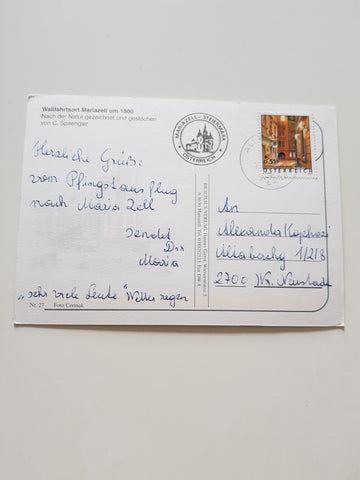 Wallfahrtsort Mariazell um 1800
Nach der Natur gezeichnet und gestochen
von C. Spaengler
Herzliche Grüße
vom Pfingstausflug
nach Maria Zell
sendet
Dir
Maria
„sehr viele Leute" Wetter regen
Nr. 27 Foto Cermak
MARIAZELL - STEIERMARK
ÖSTERREICH
A 8630 Mariazell, Tel.
ÖSTERREICH
An
Alexander
1/2/8
2700 Wr. Neustadt